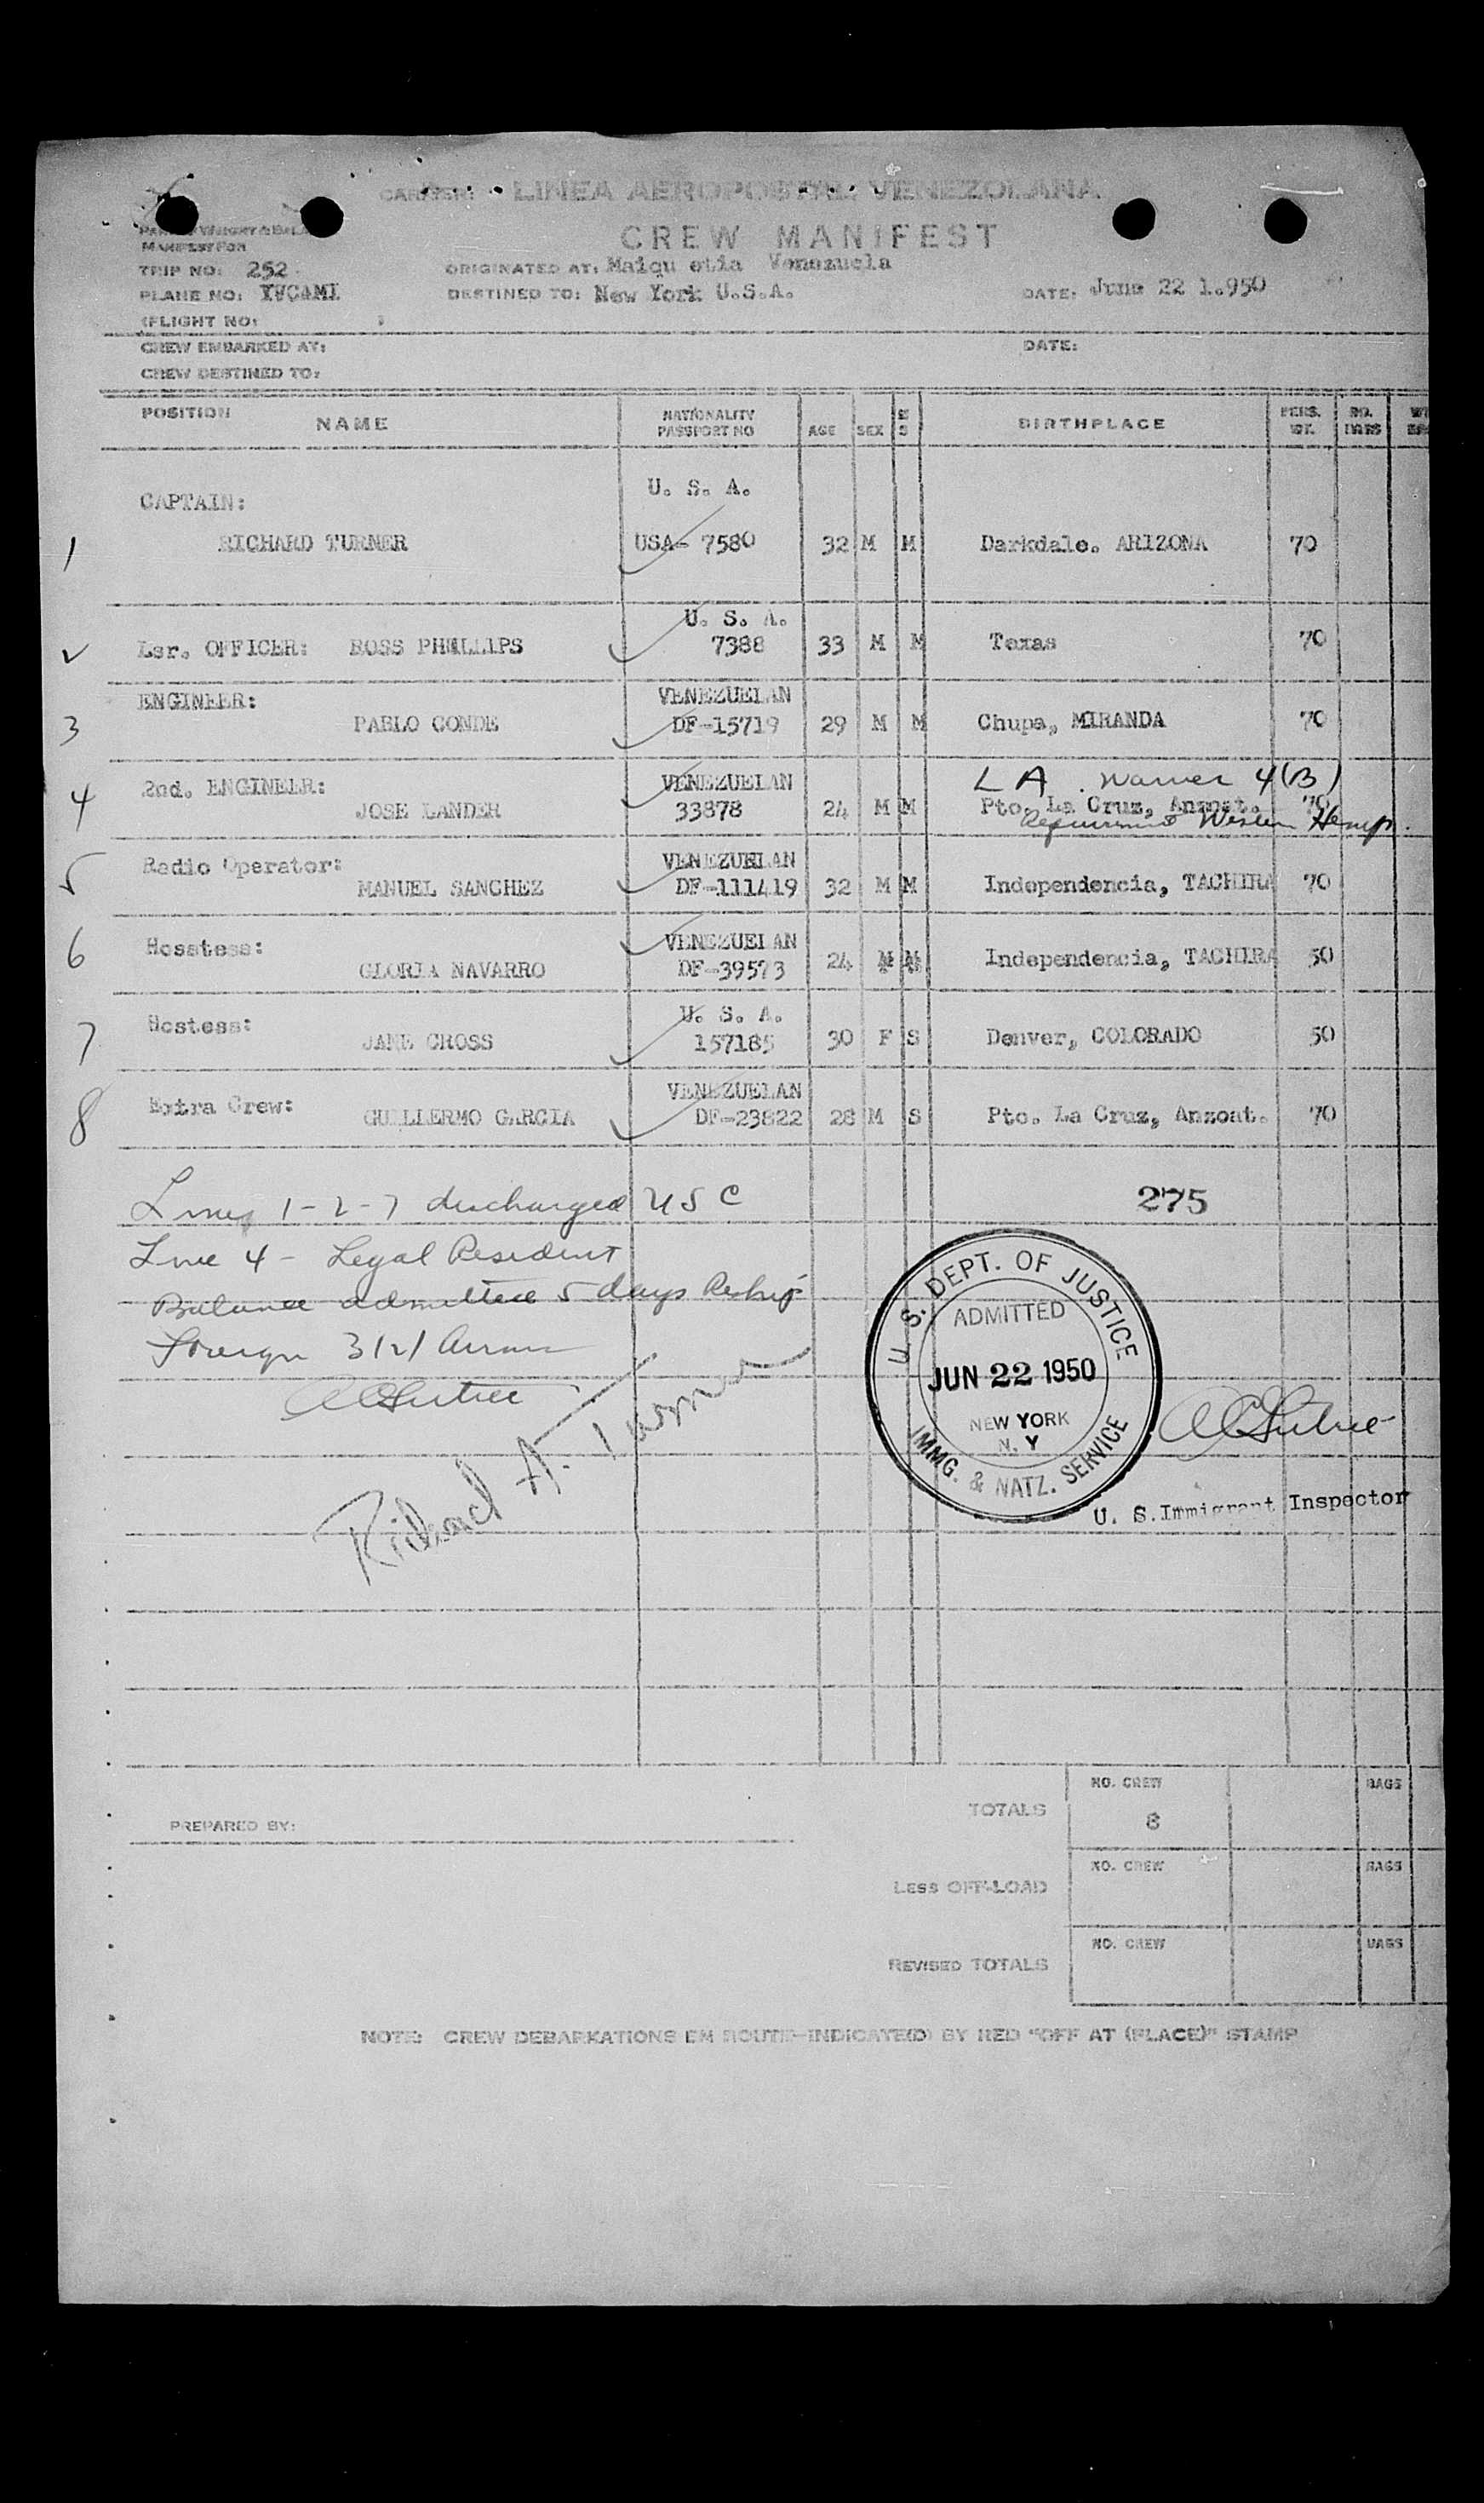 CARRIER: LINEA AEROPOSTAL VENEZOLANA
CREW MANIFEST
MANIFEST FOR
TRIP NO: 252
ORIGINATED AT: Maiqu etia Venezuela
PLANE NO: YVCAMI
DESTINED TO: New York U.S.A.
DATE: June 22 1.950
(FLIGHT NO:
CREW EMBARKED AT:
DATE:
CREW DESTINED TO:
POSITION NAME NATIONALITY PASSPORT NO AGE SEX M S BIRTHPLACE PERS. WT. NO. BAGS
CAPTAIN: U. S. A.
1 RICHARD TURNER USA- 7580 32 M M Darkdale. ARIZONA 70
U. S. A.
2 1sr. OFFICER: ROSS PHILLIPS 7388 33 M M Texas 70
ENGINEER: VENEZUELAN
3 PABLO CONDE DF-15719 29 M M Chupa, MIRANDA 70
LA. Waiver 4(B)
2nd. ENGINEER: VENEZUELAN
4 JOSE LANDER 33878 24 M M Pto. La Cruz, Anzoat. 70
Western Hemp.
Radio Operator: VENEZUELAN
5 MANUEL SANCHEZ DF-111419 32 M M Independencia, TACHIRA 70
Hosstess: VENEZUELAN
6 GLORIA NAVARRO DF-39573 24 Independencia, TACHIRA 50
Hostess: U. S. A.
7 JANE CROSS 157185 30 F S Denver, COLORADO 50
Extra Crew: VENEZUELAN
8 GUILLERMO GARCIA DF-23822 28 M S Pto. La Cruz, Anzoat. 70
Lines 1-2-7 discharged USC
275
Line 4 - Legal Resident
Balance admitted 5 days Reship
Foreign 3(2)
Richard A. Turner
U. S. DEPT. OF JUSTICE
ADMITTED
JUN 22 1950
NEW YORK
N. Y
IMMG. & NATZ. SERVICE
U. S. Immigrant Inspector
NO. CREW BAGS
TOTALS 8
PREPARED BY:
NO. CREW BAGS
LESS OFF-LOAD
NO. CREW BAGS
REVISED TOTALS
NOTE: CREW DEBARKATIONS EM ROUTE-INDICATE(D) BY RED "OFF AT (PLACE)" STAMP